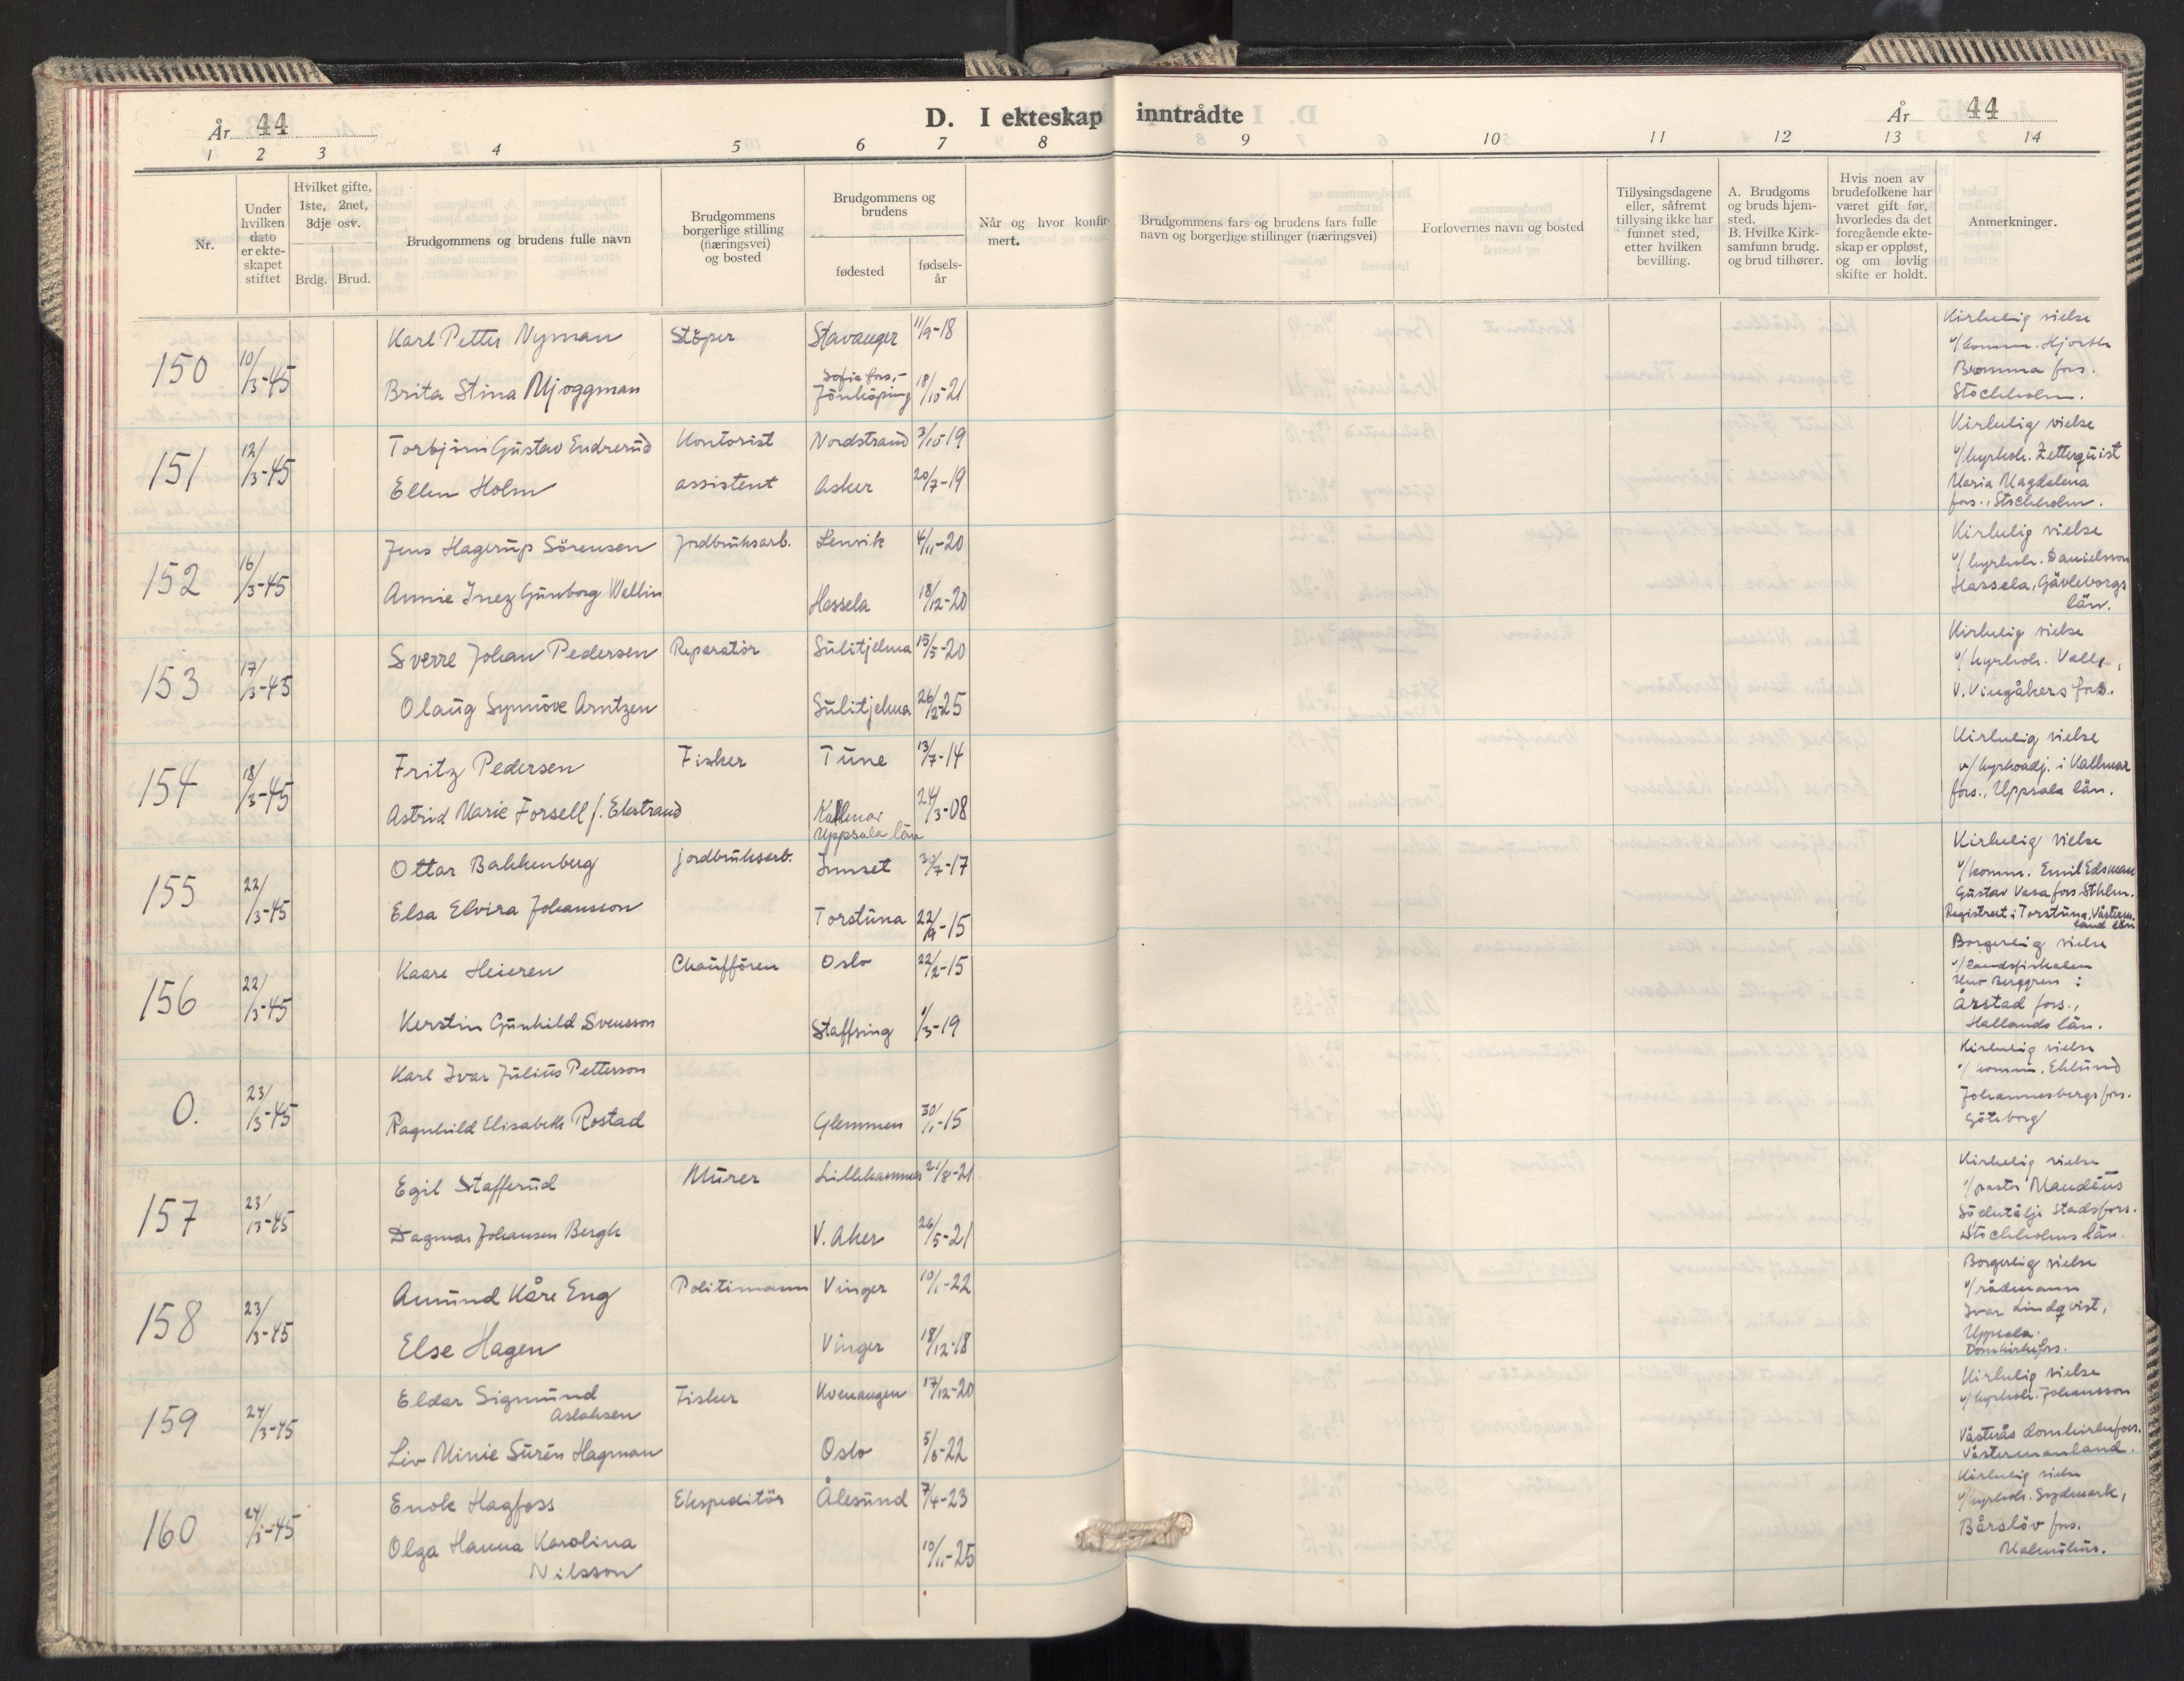 År 44
D. I ekteskap inntrådte
År 44
1 2 3 4 5 6 7 8 9 10 11 12 13 14
Nr.
Under hvilken dato er ekteskapet stiftet
Hvilket gifte, 1ste, 2net, 3dje osv.
Brdg. Brud.
Brudgommens og brudens fulle navn
Brudgommens borgerlige stilling (næringsvei) og bosted
Brudgommens og brudens
fødested
fødselsår
Når og hvor konfirmert.
Brudgommens fars og brudens fars fulle navn og borgerlige stillinger (næringsvei)
Forlovernes navn og bosted
Tillysingsdagene eller, såfremt tillysing ikke har funnet sted, etter hvilken bevilling.
A. Brudgoms og bruds hjemsted.
B. Hvilke Kirksamfunn brudg. og brud tilhører.
Hvis noen av brudefolkene har været gift før, hvorledes da det foregående ekteskap er oppløst, og om lovlig skifte er holdt.
Anmerkninger.
150 10/3-45
Karl Petter Nyman Støper Stavanger 11/9-18
Brita Stina Mjoggman Sofia fors.,- Jönköping 18/10-21
Kirkelig vielse
v/komm. Hjorth
Bromma fors.
Stockholm.
151 12/3-45
Torbjörn Gustav Endrerud Kontorist Nordstrand 3/10-19
Ellen Holm assistent Asker 20/7-19
Kirkelig vielse
v/kyrkoh. Zetterquist
Maria Magdalena
fors., Stockholm.
152 16/3-45
Jens Hagerup Sörensen Jordbruksarb. Lenvik 4/11-20
Annie Inez Gunborg Wallin Hassela 18/12-20
Kirkelig vielse
v/kyrkoh. Danielsson
Hassela, Gävleborgs
län.
153 17/3-45
Sverre Johan Pedersen Reparatör Sulitjelma 15/5-20
Olaug Synnöve Arntzen Sulitjelma 26/2-25
Kirkelig vielse
v/kyrkoh. Valls,
V. Vingåkers fors.
154 18/3-45
Fritz Pedersen Fisker Tune 13/7-14
Astrid Marie Forsell f. Ekstrand Kallmar Uppsala län 24/3-08
Kirkelig vielse
v/kyrkoadj. i Kallmar
fors., Uppsala län.
155 22/3-45
Ottar Bakkenberg jordbruksarb. Innset 30/7-17
Elsa Elvira Johansson Torstuna 22/9-15
Kirkelig vielse
v/komm. Emil Edsman
Gustav Vasa fors. Sthlm.
Registrert i Torstuna, Västerm.
land län
156 22/3-45
Kaare Heieren Chauffören Oslo 22/2-15
Kerstin Gunhild Svensson Staffsing 1/3-19
Borgerlig vielse
v/landsfiskalen
Uno Berggren i
Årstad fors.,
Hallands län.
0. 23/3-45
Karl Ivar Julius Petterson
Ragnhild Elisabeth Rostad Glemmen 30/1-15
Kirkelig vielse
v/komm. Eklund
Johannesbergs fors.
Göteborg
157 23/3-45
Egil Stafferud Murer Lillehammer 21/8-21
Dagmar Johansen Bergh V. Aker 26/5-21
Kirkelig vielse
v/pastor Mandéus
Södertälje Stadsfors.
Stockholms län.
158 23/3-45
Amund Kåre Eng Politimann Vinger 10/1-22
Else Hagen Vinger 18/12-18
Borgerlig vielse
v/rådmann
Ivar Lindqvist,
Uppsala
Domkirkefors.
159 24/3-45
Eldar Sigmund Fisker Kvenangen 17/12-20
Aslaksen
Liv Minie Surén Hagman Oslo 5/6-22
Kirkelig vielse
v/kyrkoh. Johansson
Västerås domkirkefors.
Västermanland.
160 24/3-45
Enok Hagfoss Ekspeditör Ålesund 7/4-23
Olga Hanna Karolina 10/11-25
Nilsson
Kirkelig vielse
v/kyrkoh. Sydmark,
Bårslöv fors.
Malmöhus.